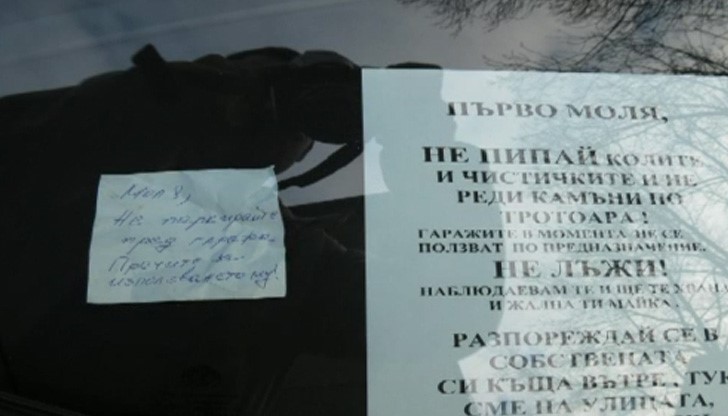 Моля,
Не паркирайте
пред гаража.
Пречите за
използването му!
ПЪРВО МОЛЯ,
НЕ ПИПАЙ КОЛИТЕ
И ЧИСТАЧКИТЕ И НЕ
РЕДИ КАМЪНИ ПО
ТРОТОАРА!
ГАРАЖИТЕ В МОМЕНТА НЕ СЕ
ПОЛЗВАТ ПО ПРЕДНАЗНАЧЕНИЕ.
НЕ ЛЪЖИ!
НАБЛЮДАВАМ ТЕ И ЩЕ ТЕ ХВАНА
И ЖАЛНА ТИ МАЙКА.
РАЗПОРЕЖДАЙ СЕ В
СОБСТВЕНАТА
СИ КЪЩА ВЪТРЕ, ТУК
СМЕ НА УЛИЦАТА,